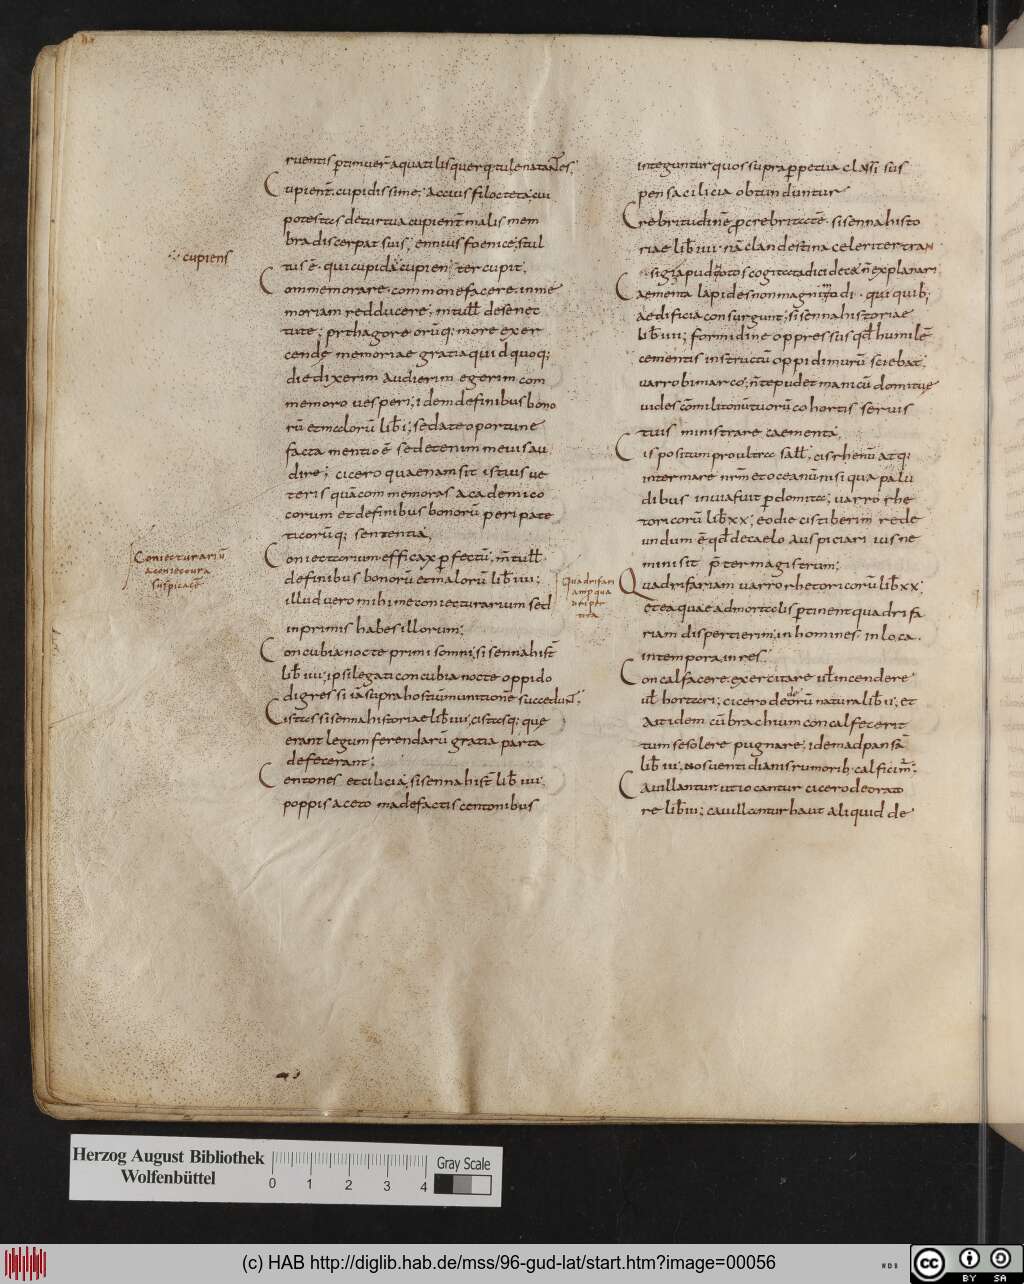 cupiens
Coniecturariū
a coniectura
suspicacē
ruentis ptimuer̄ aquatilisquerq:tulenatantes;
Cupient̄. cupidissime; Accius filocteta; cui
potestas deturtua cupient̄ malis mem
bradiscerpat suis; ennius foenice; stul
tus ē. quicupida cupiens; ter cupit;
Commemorare. commonefacere. inme
moriam redducere; m̄ tull̄ desenec
tute; pythagoreorūq; more exer
cende memoriae gratia quidquoq;
diedixerim audierim egerim com
memoro vesperi; idemdefinibusbono
rū etmalorū lib̄ i; sedateoportune
facta mentio ē sedetenim meuisau
dire; cicero quaenamsit istius ue
teris quācommemoras academico
corum etdefinibus bonorū peripate
ticorūq; sententia;
Coniectorium efficax pfectū; m̄ tull̄
definibus bonorū etmalorū lib̄ iiii;
illud uero mihi meconiecturarium sed
inprimis habes illorum;
Concubia nocte primi somni; sisennahist̄
lib̄ iiii; ipsilegati concubia nocte oppido
digressi iāsuprahostiūmunitionē succedunt;
Cistas sisennahistoriaelib̄ iiii; cistasq; que
erant legum ferendarū gratia parta
defecerant;
Centones etcilicia; sisennahist̄ lib̄ iiii;
poppis aceto madefactis centonibus
Quadrifari
am
integuntur quos supra ppetua classi sus
pensa cilicia obtunduntur
Crebritudinē pcrebritatē. sisennahisto
riae lib̄ iiii; nā clandestina celeriter tran
Caementa lapides nonmagni modi. qui quib;
aedificia consurgunt; sisennahistoriae
lib̄ iii; formidine oppressus qđ humilē
cementis instructū oppidi murū sciebat;
varrobimarco; n̄tepudet manicū domitue
uides cōmilitonūtuorū cohortis servis
tuis ministrare caementa;
Cis positumproultra sall̄; cisrhenū atq;
intermare nrm̄ etoceanūnisi qua palu
dibus inuiafuit pdomita; varro rhe
toricorū lib̄ xx; eodie cistiberim rede
undum ē qđ decaelo auspiciari ius ne
minisit pter magistrum;
Quadrifariam varro rhetoricorū lib̄ xx;
etea quae admortalis ptinent quadrifa
riam dispertierim; in homines in loca.
intempora inres;
Concalfacere. exercitare ul̄ incendere
ul̄ hortari; cicero de orū natura lib̄ ii; et
astidem cū brachium concalfecerit
tumsesolere pugnare; idemadpansā
lib̄ iii;
Cauillantur. utiocantur cicerodeorato
re lib̄ iii; cauillantur haut aliquid de
Herzog August Bibliothek
Wolfenbüttel
0 1 2 3 4
Gray Scale
(c) HAB http://diglib.hab.de/mss/96-gud-lat/start.htm?image=00056
WDB
cc BY SA